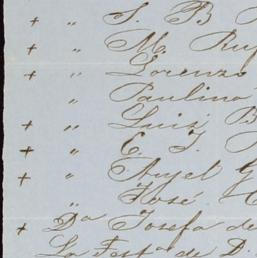 + " S. B.
+ " M. Ruf
+ " Lorenzo
" Paulina
+ " Luis B
+ " C. J.
+ " Angel G
" José
+ Da Josefa de
La Testa de D.